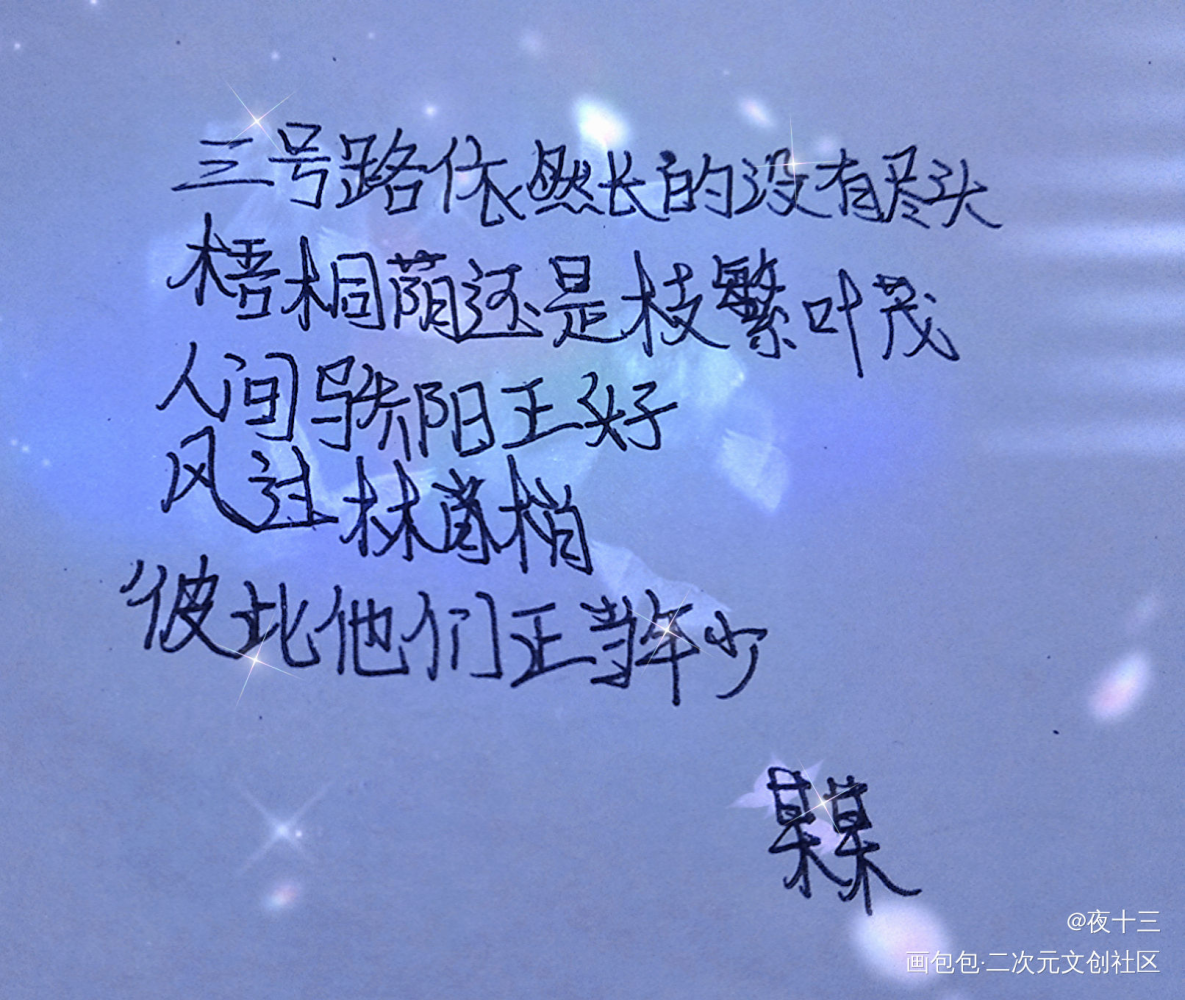 三号路依然长的没有尽头
梧桐荫还是枝繁叶茂
人间骄阳正好
风过林茑梢
彼此他们正当年少
某某
@夜十三
画包包·二次元文创社区